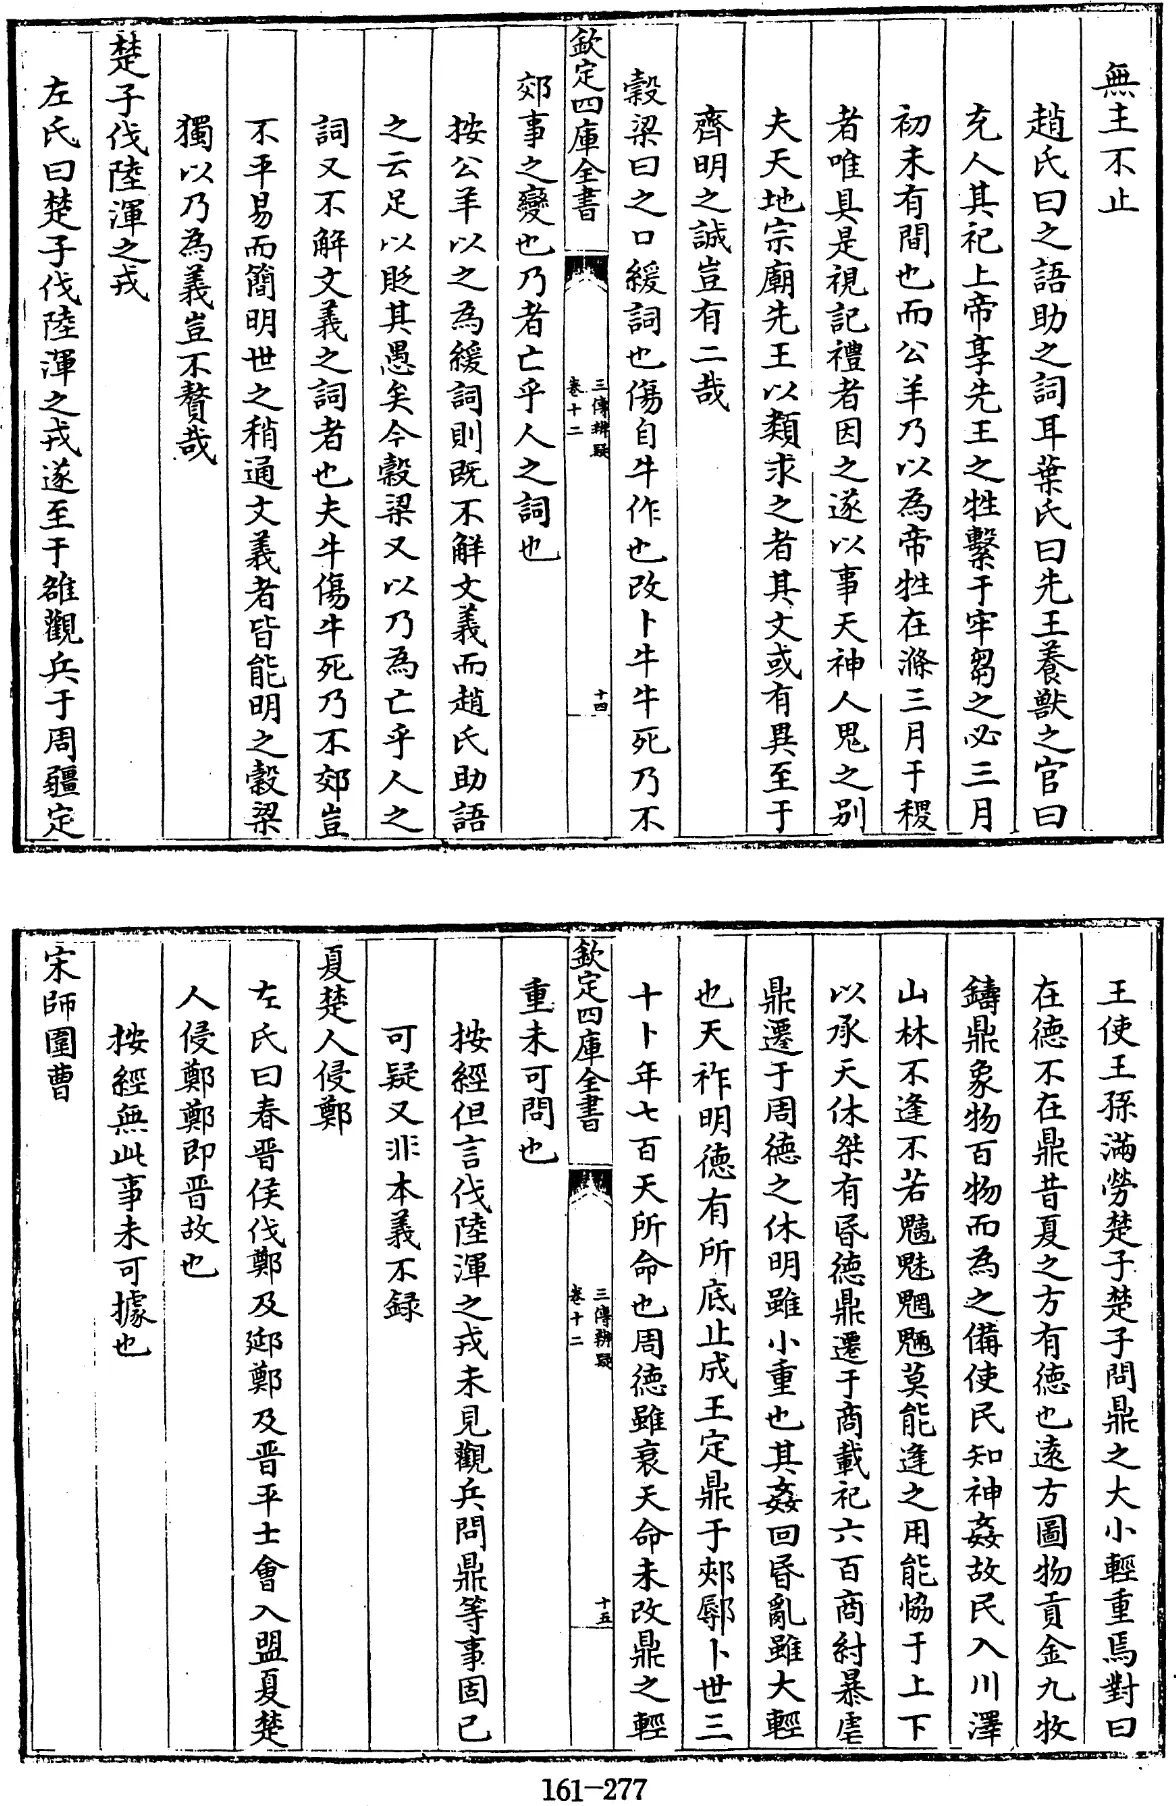 無主不止
趙氏曰之語助之詞耳葉氏曰先王養獸之官曰
充人其祀上帝享先王之牲繫于牢芻之必三月
初未有間也而公羊乃以為帝牲在滌三月于稷
者唯具是視記禮者因之遂以事天神人鬼之别
夫天地宗廟先王以類求之者其文或有異至于
齊明之誠豈有二哉
穀梁曰之口緩詞也傷自牛作也改卜牛牛死乃不
欽定四庫全書
三傳辨疑
卷十二
十四
郊事之變也乃者亡乎人之詞也
按公羊以之為緩詞則既不解文義而趙氏助語
之云足以貶其愚矣今穀梁又以乃為亡乎人之
詞又不解文義之詞者也夫牛傷牛死乃不郊豈
不平易而簡明世之稍通文義者皆能明之穀梁
獨以乃為義豈不贅哉
楚子伐陸渾之戎
左氏曰楚子伐陸渾之戎遂至于雒觀兵于周疆定
王使王孫滿勞楚子楚子問鼎之大小輕重焉對曰
在德不在鼎昔夏之方有德也遠方圖物貢金九牧
鑄鼎象物百物而為之備使民知神姦故民入川澤
山林不逢不若魑魅魍魎莫能逢之用能協于上下
以承天休桀有昏德鼎遷于商載祀六百商紂暴虐
鼎遷于周德之休明雖小重也其姦回昏亂雖大輕
也天祚明德有所底止成王定鼎于郟鄏卜世三
十卜年七百天所命也周德雖衰天命未改鼎之輕
欽定四庫全書
三傳辨疑
卷十二
十五
重未可問也
按經但言伐陸渾之戎未見觀兵問鼎等事固已
可疑又非本義不録
夏楚人侵鄭
左氏曰春晉侯伐鄭及郔鄭及晉平士會入盟夏楚
人侵鄭鄭即晉故也
按經無此事未可據也
宋師圍曹
161-277